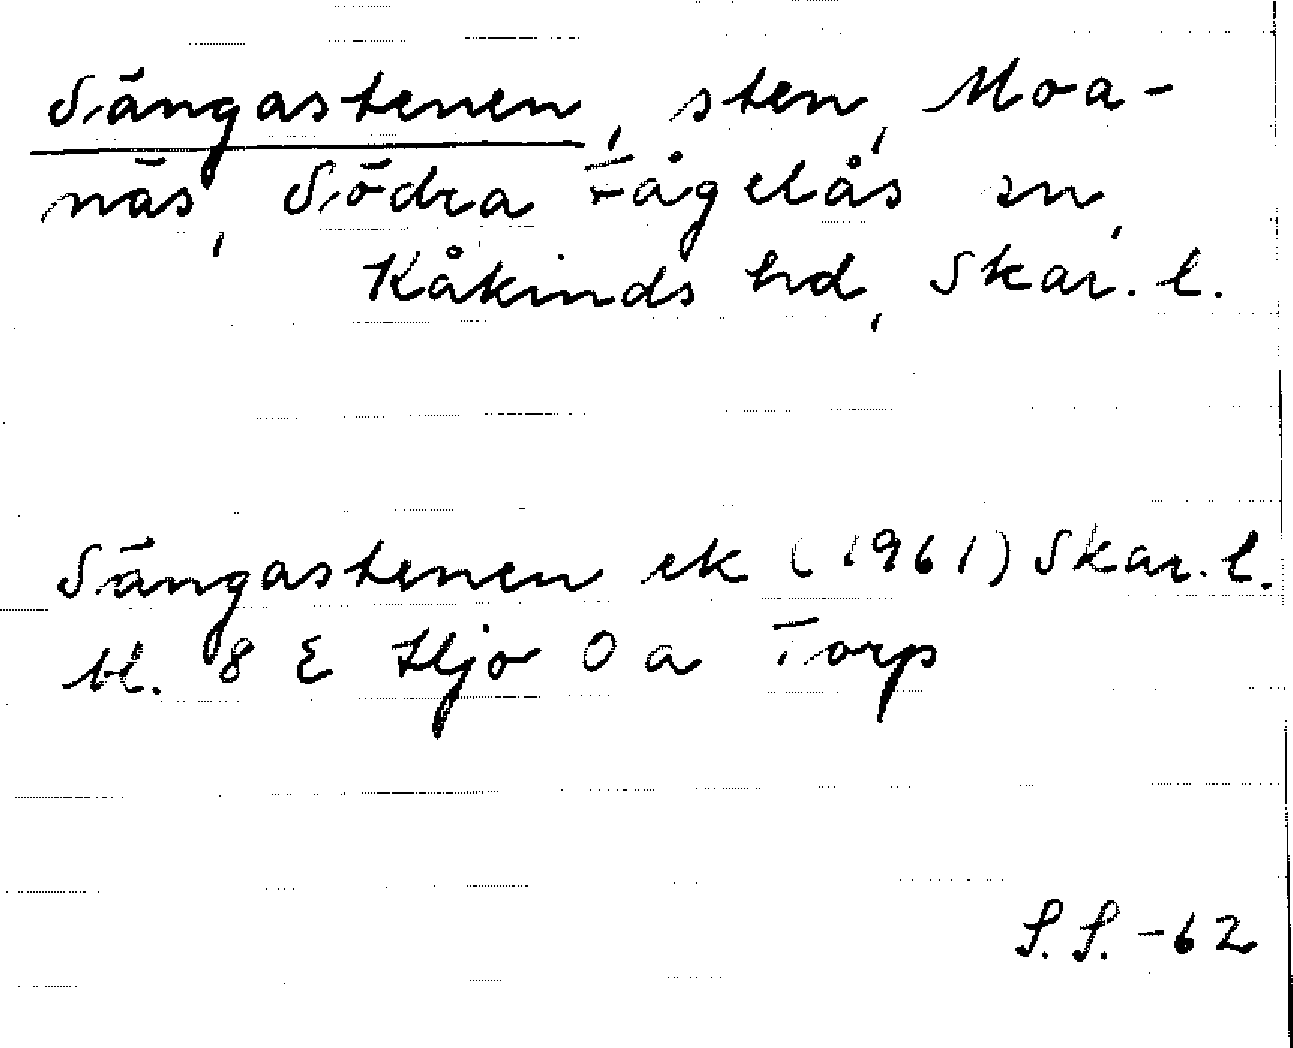 Sängastenen, sten, Moa-
näs, Södra Fågelås sn,
Kåkinds hd, Skar. l.
Sängastenen ek (1961) Skar. l.
bl. 8 E Hjo 0 a Torp
S.S. -62